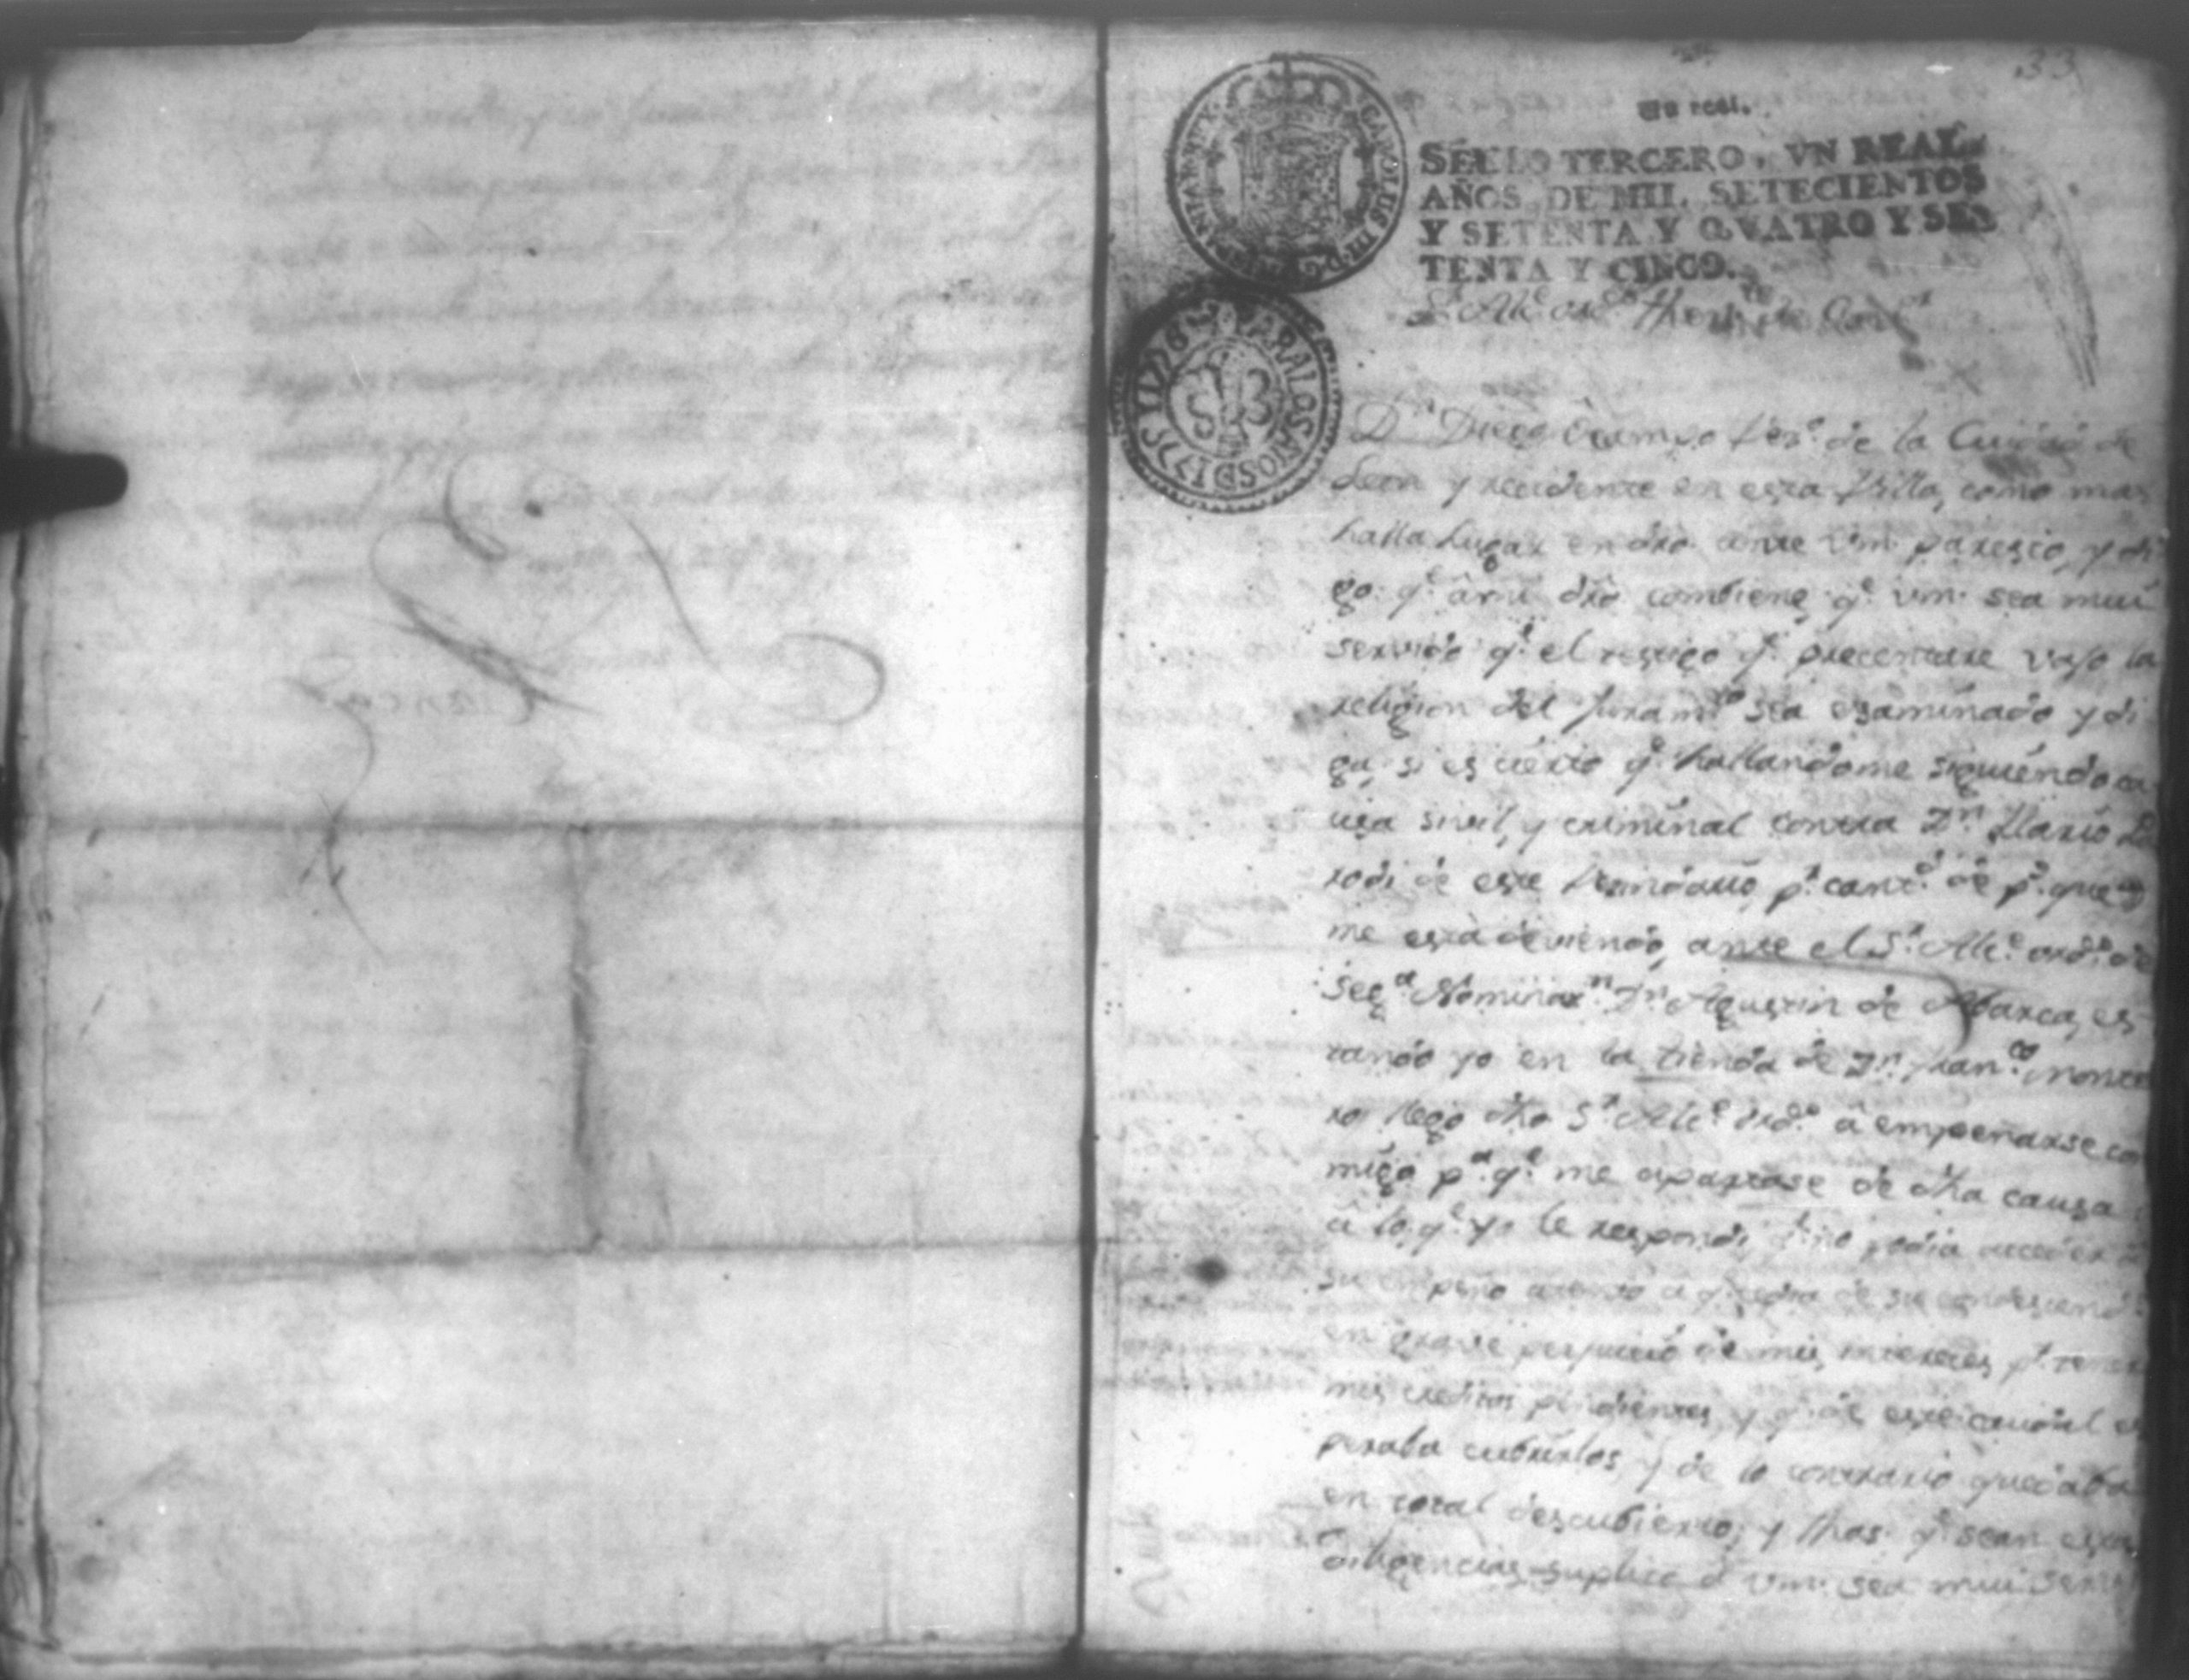 33
Un real.
SELLO TERCERO, VN REAL,
AÑOS DE MIL SETECIENTOS
Y SETENTA Y QVATRO Y SE
TENTA Y CINCO.
CAROLUS III D G HISPANIAR REX
PARA LOS AÑOS D 1775 Y 1776
Sr. Alce. ordo.
Dn. Diego Ocampo Vezo. de la Cuidad de
Leon y recidente en esta Villa, como mas
halla lugar en dro. ante Vm. paresco, y di
go: qe. à mi dro combiene qe. vm. sea mui
servido qe. el testigo qe. precentare vajo la
religion del Juramto. sea examinado y di
ga, si es cierto qe. hallandome siguiendo ca
usa sivil, y criminal contra Dn. Ilario
rodi de este Vecindario, pr. cantd. de ps. que
me està deviendo, ante el Sr. Alce. ordo. de
Sega. Nominaxn. Dn. Agustin de Abarca, es
tando yo en la tienda de Dn. Franco. Monte
ro, llego dho Sr. Alce. ordo. â empeñarse con
migo pa. qe. me apartase de dha causa
â lo qe. yo le respondi, qe. no podia acceder à
su empeño atento a qe. de su condesiend
en grave perjuicio de mis intereces, pr. tener
mis creditos pendientes, y qe. de este caudal es
peraba cubrirlos, y de lo contrario quedaba
en total descubierto; y fhas. qe. sean estas
diligencias suplico â Vm. sea mui servi